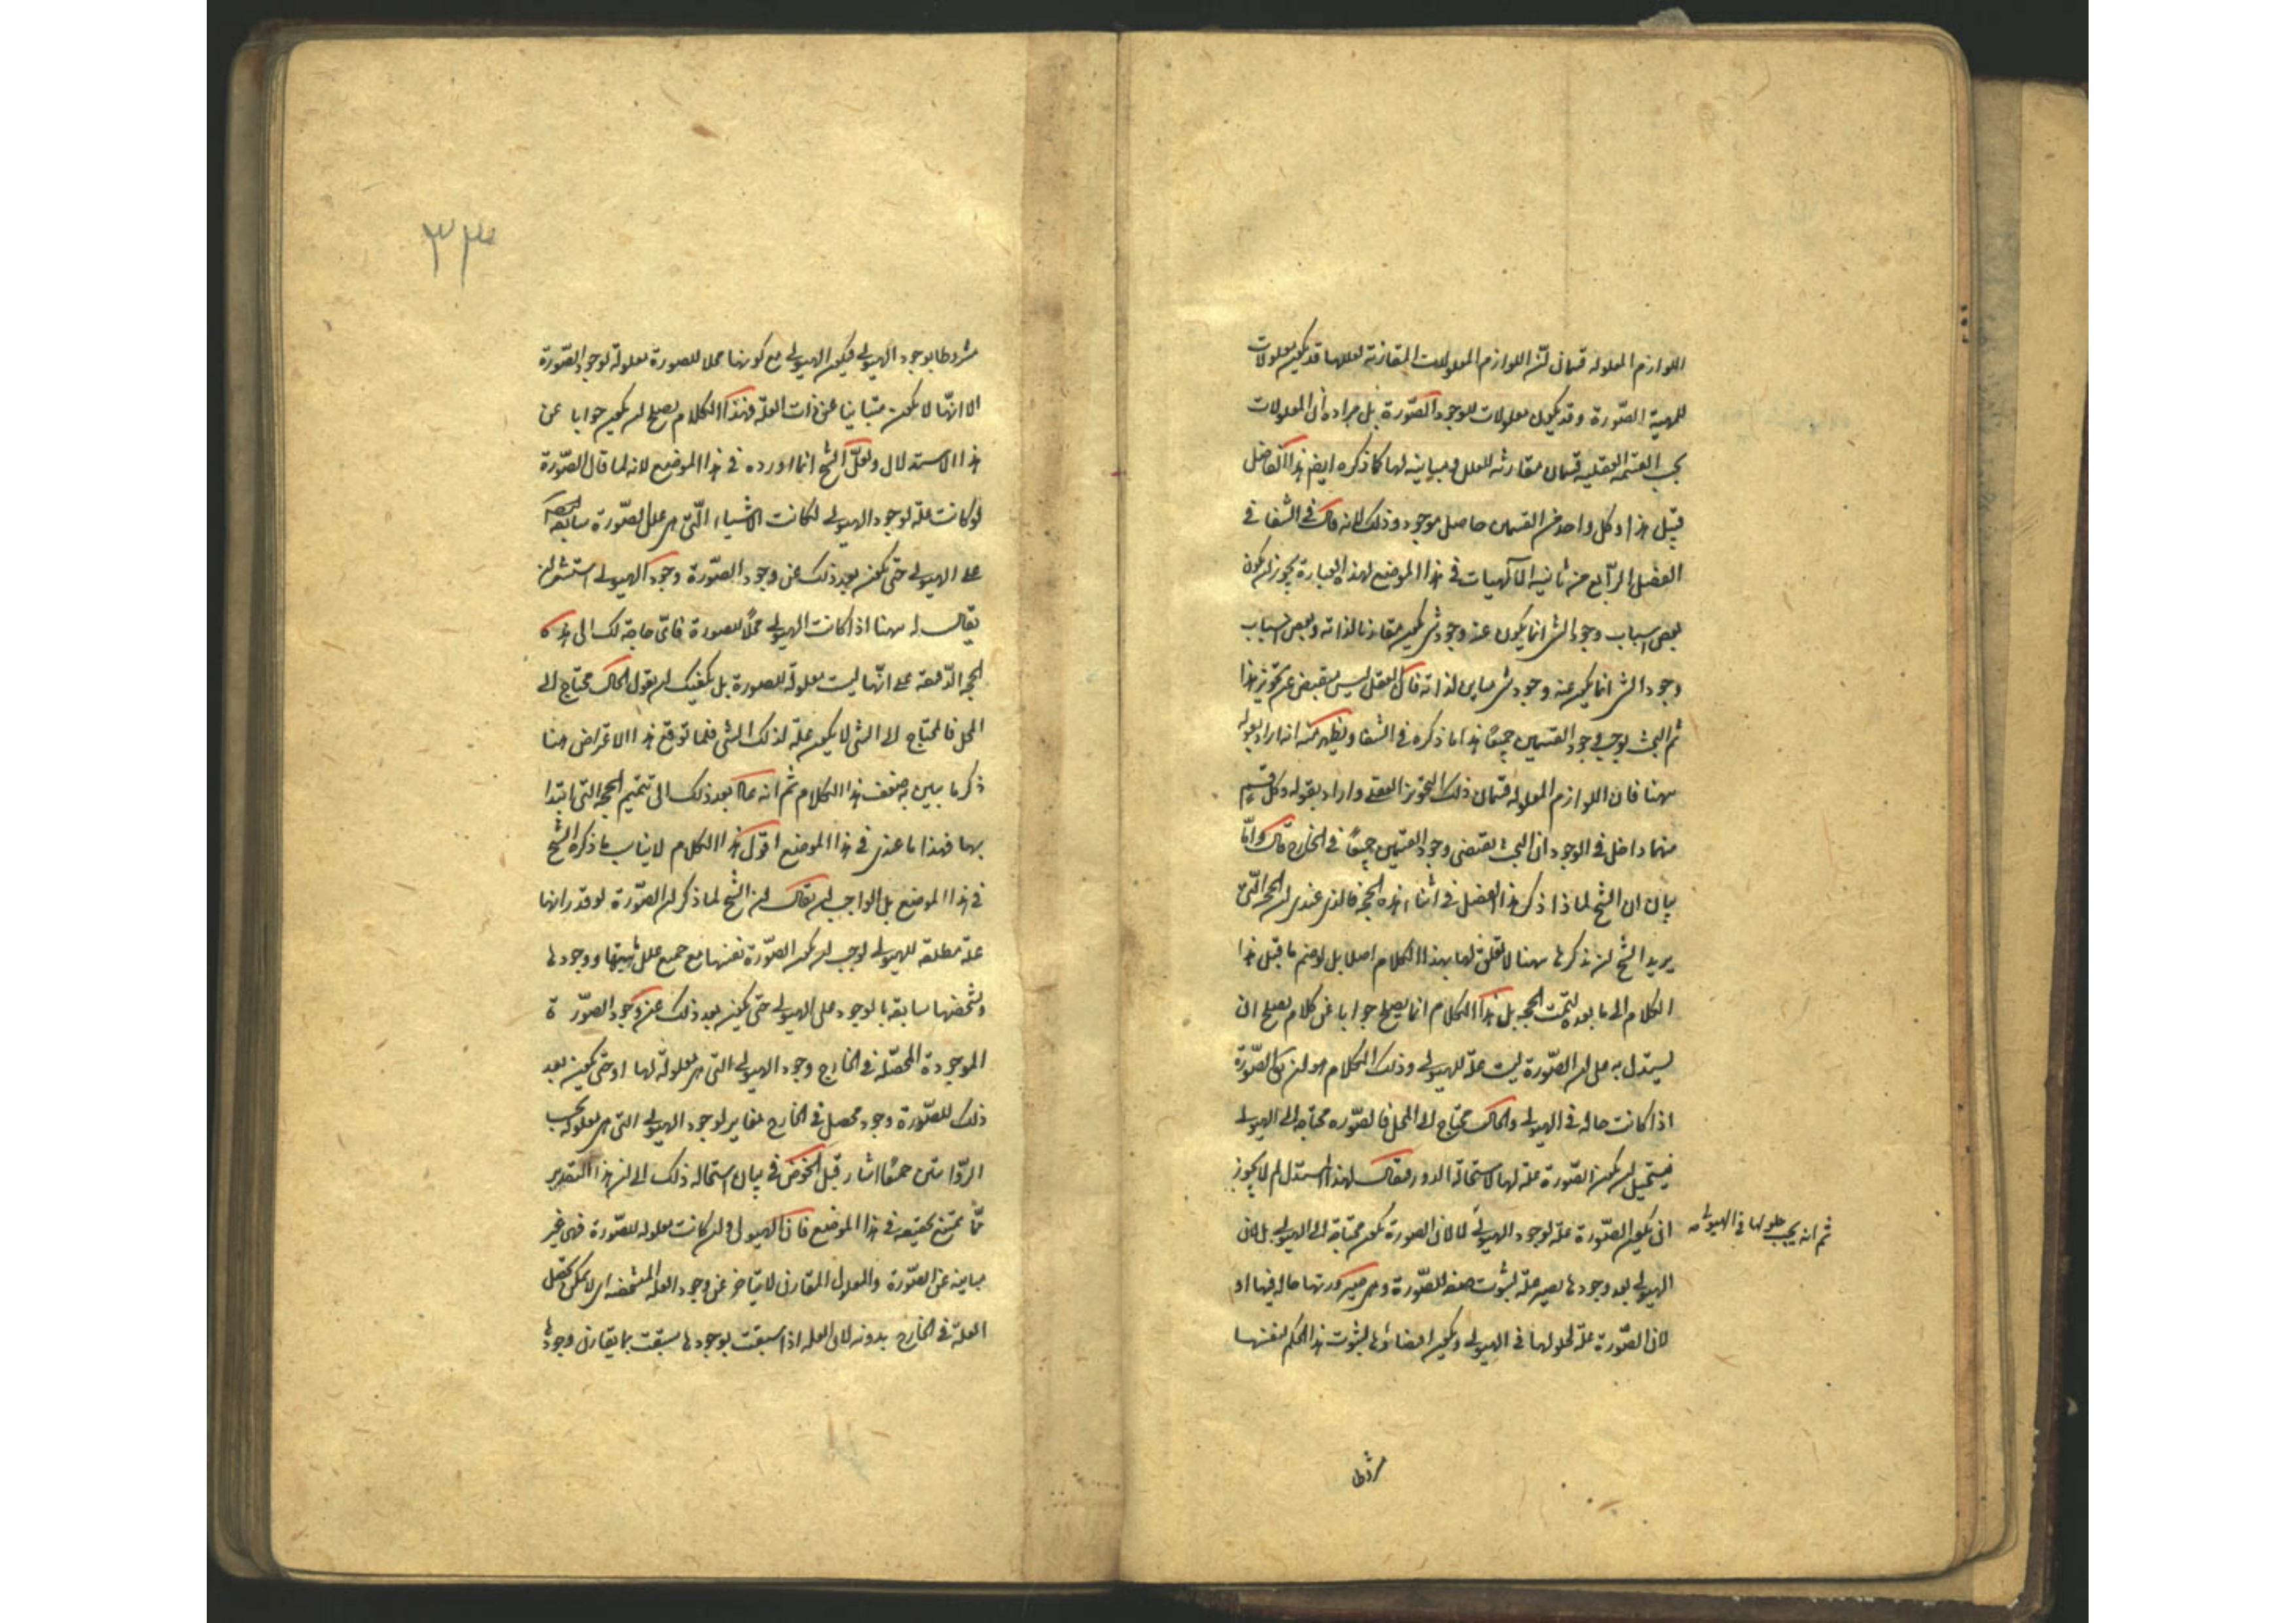 اللوازم المعلولة قسمان لان اللوازم المعلولات المقارنة لعللها قد يكون معلولات
للمهية الصّورة وقد يكون معلولات لوجود الصّورة بل مراده ان المعلولات
بحسب القسمة العقلية قسمان مقارنة للعلل ومباينة لها كما ذكره ايضا هذا الفاضل
قبيل هذا وكل واحد من القسمين حاصل موجود وذلك لانه قال في الشفا في
الفصل الرابع من ثانية الالهيات في هذا الموضع لهذه العبارة يجوز ان يكون
بعض اسباب وجود الشئ انما يكون عنه وجود شئ يكون مقارنا لذاته وبعض اسباب
وجود الشئ انما يكون عنه وجود شئ مباين لذاته فان العقل ليس ينقبض عن تجويز هذا
ثم البحث يوجب وجود القسمين جميعًا هذا ما ذكره في الشفا ويظهر منه انه اراد بقوله
ههنا فان اللوازم المعلولة قسمان ذلك التجويز العقلى واراد بقوله وكل قسم
منهما داخل في الوجود ان البحث يقتضى وجود القسمين جميعًا في الخارج قال وامّا
بيان ان الشيخ لماذا ذكر هذا الفصل في اثناء هذه الحجة فالذى عندى ان الحجة الّتى
يريد الشيخ ان يذكرها ههنا لا تعلق لها بهذا الكلام اصلا بل لو ضم ما قبل هذا
الكلام الى ما بعده لتمت الحجة بل هذا الكلام انما يصلح جوابا عن كلام يصلح ان
يستدل به على ان الصّورة ليست علة للهيولى وذلك الكلام هو ان يقال الصّورة
اذا كانت حالة في الهيولى والحال محتاج الى المحل فالصّورة محتاجة الى الهيولى
فيستحيل ان يكون الصّورة علة لها لاستحالة الدور فيقال لهذا المستدل لم لا يجوز
ان يكون الصّورة علة لوجود الهيولى لا لان الصورة يكون محتاجة الى الهيولى بل لان
ثم انه يجب حلولها في الهيولى صه
الهيولى بعد وجودها يصير علة لثبوت صفة للصّورة وهى صيرورتها حالة فيها او
لان الصّورة علة لحلولها في الهيولى ويكون اقتضاؤها لثبوت هذا الحكم لنفسها
مشروطا
٣٣
مشروطا بوجود الهيولى فيكون الهيولى مع كونها محلا للصورة معلولة لوجود الصّورة
الا انّها لا يكون متباينا عن ذات العلة فهذا الكلام يصلح ان يكون جوابا عن
هذا الاستدلال ولعلّ الشيخ انما اورده في هذا الموضع لانه لما قال الصّورة
لو كانت علة لوجود الهيولى لكانت الاشياء الّتى هى علل الصّورة سابقة
على الهيولى حتى يكون بعد ذلك عن وجود الصّورة وجود الهيولى استشعر ان
يقال له ههنا اذا كانت الهيولى محلًا للصورة فاىّ حاجة لك الى هذه
الحجة الدقيقة على انّها ليست معلولة للصورة بل يكفيك ان تقول الحال محتاج الى
المحل فالمحتاج الى الشئ لا يكون علة لذلك الشئ فلما توقع هذا الاعتراض ههنا
ذكر ما يبين به ضعف هذا الكلام ثم انه عاد بعد ذلك الى تتميم الحجة التى ابتدا
بها فهذا ما عندى في هذا الموضع اقول هذا الكلام لا يناسب ما ذكره الشيخ
في هذا الموضع بل الواجب ان يقال ان الشيخ لما ذكر ان الصّورة لو قدر انها
علة مطلقة للهيولى لوجب ان يكون الصّورة نفسها مع جميع علل مهيتها ووجودها
وتشخصها سابقة بالوجود على الهيولى حتى يكون بعد ذلك عن وجود الصّورة
الموجودة المحصّلة في الخارج وجود الهيولى التى هى معلولة لها او حتى يكون بعد
ذلك للصّورة وجود محصل في الخارج مغاير لوجود الهيولى التى هى معلوله بحسب
الرّوايتين جميعًا اشار قبل الخوض في بيان استحالة ذلك الى ان هذا التقدير
ممّا يمتنع تحقيقه في هذا الموضع فان الهيولى وان كانت معلولة للصّورة فهى غير
مباينة عن الصّورة والمعلول المقارن لا يتاخر عن وجود العلة المشخصة اى لا يمكن تحصل
العلة في الخارج بدونه لان العلة اذا سبقت بوجودها سبقت بما يقارن وجودها